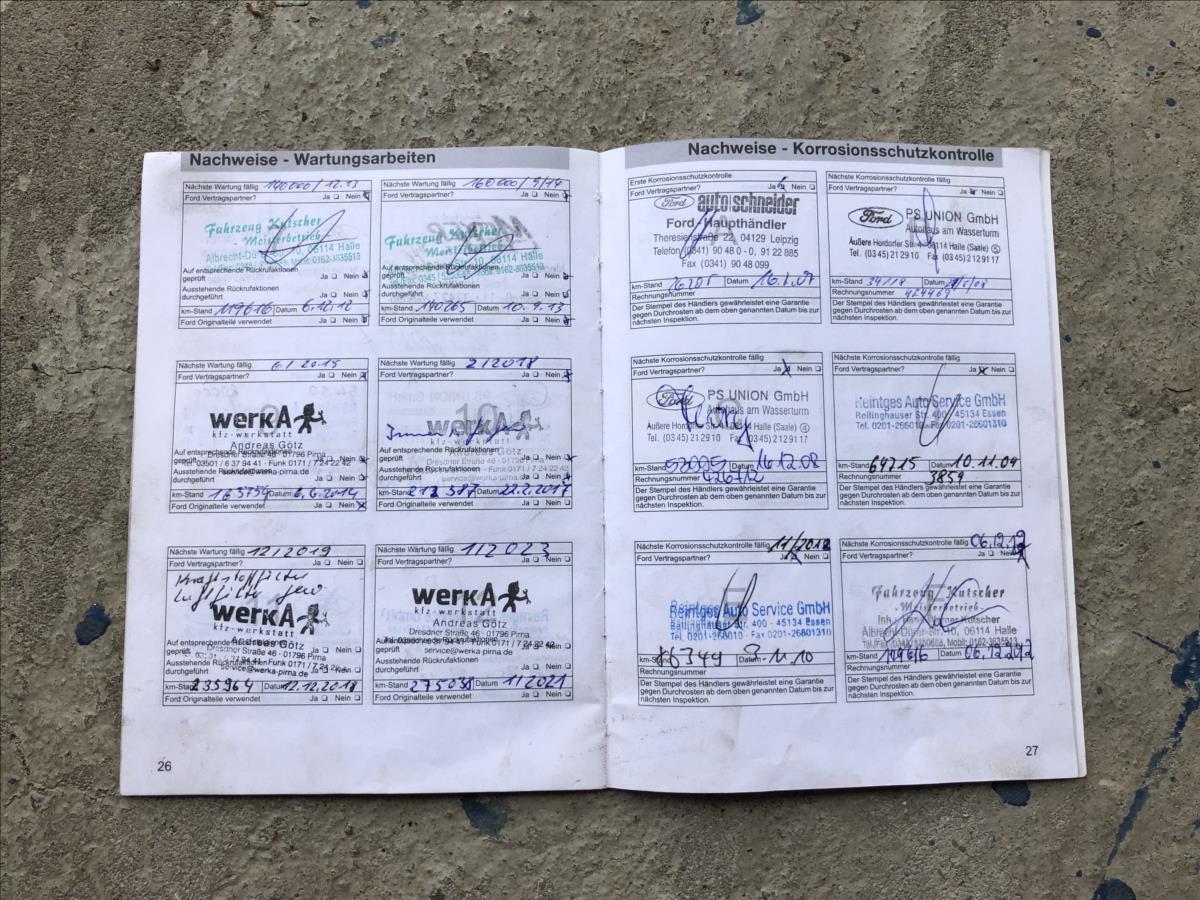 Nachweise - Wartungsarbeiten
Nächste Wartung fällig 140000/12.13
Ford Vertragspartner? Ja Nein
Fahrzeug Kutscher
Meisterbetrieb
06114 Halle
Auf entsprechende Rückrufaktionen
geprüft Ja Nein
Ausstehende Rückrufaktionen
durchgeführt Ja Nein
km-Stand 119616 Datum 6.12.12
Ford Originalteile verwendet Ja Nein
Nächste Wartung fällig 160000/9/14
Ford Vertragspartner? Ja Nein
Fahrzeug Kutscher
Meisterbetrieb
06114 Halle
Auf entsprechende Rückrufaktionen
geprüft Ja Nein
Ausstehende Rückrufaktionen
durchgeführt Ja Nein
km-Stand 140265 Datum 10.9.13
Ford Originalteile verwendet Ja Nein
Nächste Wartung fällig 6/2015
Ford Vertragspartner? Ja Nein
werkA
kfz-werkstatt
Andreas Götz
Dresdner Straße 46 - 01796 Pirna
Auf entsprechende Rückrufaktionen
geprüft Ja Nein
Tel. 03501 / 6 37 94 41 - Funk 0171 / 7 24 22 42
Ausstehende Rückrufaktionen
durchgeführt Ja Nein
km-Stand 163754 Datum 6.6.2014
Ford Originalteile verwendet Ja Nein
Nächste Wartung fällig 2/2018
Ford Vertragspartner? Ja Nein
10
kfz-werkstatt
Andreas Götz
Dresdner Straße 46 - 01796 Pirna
Auf entsprechende Rückrufaktionen
geprüft Ja Nein
Ausstehende Rückrufaktionen
durchgeführt Ja Nein
km-Stand 212 317 Datum 22.2.2017
Ford Originalteile verwendet Ja Nein
Nächste Wartung fällig 12/2019
Ford Vertragspartner? Ja Nein
Kraftstofffilter
Luftfilter gew
werkA
kfz-werkstatt
Andreas Götz
Dresdner Straße 46 - 01796 Pirna
Auf entsprechende Rückrufaktionen
geprüft Ja Nein
Ausstehende Rückrufaktionen
service@werka-pirna.de
durchgeführt Ja Nein
km-Stand 235964 Datum 12.12.2018
Ford Originalteile verwendet Ja Nein
Nächste Wartung fällig 1/2023
Ford Vertragspartner? Ja Nein
werkA
kfz-werkstatt
Andreas Götz
Dresdner Straße 46 - 01796 Pirna
Auf entsprechende Rückrufaktionen
geprüft Ja Nein
service@werka-pirna.de
Ausstehende Rückrufaktionen
durchgeführt Ja Nein
km-Stand 275038 Datum 1/2021
Ford Originalteile verwendet Ja Nein
26
Nachweise - Korrosionsschutzkontrolle
Erste Korrosionsschutzkontrolle
Ford Vertragspartner? Ja Nein
Ford auto schneider
Ford-Haupthändler
Theresienstraße 22, 04129 Leipzig
Telefon (0341) 90 48 0-0, 91 22 885
Fax (0341) 90 48 099
km-Stand Datum 16.1.07
Rechnungsnummer
Der Stempel des Händlers gewährleistet eine Garantie
gegen Durchrosten ab dem oben genannten Datum bis zur
nächsten Inspektion.
Nächste Korrosionsschutzkontrolle fällig
Ford Vertragspartner? Ja Nein
Ford PS UNION GmbH
Autohaus am Wasserturm
Äußere Hordorfer Str. 4 06114 Halle (Saale) 5
Tel. (03 45) 21 29 10 Fax (03 45) 21 29 1 17
km-Stand Datum
Rechnungsnummer
Der Stempel des Händlers gewährleistet eine Garantie
gegen Durchrosten ab dem oben genannten Datum bis zur
nächsten Inspektion.
Nächste Korrosionsschutzkontrolle fällig
Ford Vertragspartner? Ja Nein
Ford PS UNION GmbH
Autohaus am Wasserturm
Äußere Hordorfer Str. 4 06114 Halle (Saale) 4
Tel. (03 45) 21 29 10 Fax (03 45) 21 29 1 17
km-Stand Datum 16.12.08
Rechnungsnummer 426712
Der Stempel des Händlers gewährleistet eine Garantie
gegen Durchrosten ab dem oben genannten Datum bis zur
nächsten Inspektion.
Nächste Korrosionsschutzkontrolle fällig
Ford Vertragspartner? Ja Nein
Reintges Auto Service GmbH
Rellinghauser Str. 400 · 45134 Essen
Tel. 0201-266010 · Fax 0201-26601310
km-Stand 64715 Datum 10.11.09
Rechnungsnummer 3859
Der Stempel des Händlers gewährleistet eine Garantie
gegen Durchrosten ab dem oben genannten Datum bis zur
nächsten Inspektion.
Nächste Korrosionsschutzkontrolle fällig 11/2012
Ford Vertragspartner? Ja Nein
Reintges Auto Service GmbH
Rellinghauser Str. 400 · 45134 Essen
Tel. 0201-266010 · Fax 0201-26601310
km-Stand 86349 Datum 3.11.10
Rechnungsnummer
Der Stempel des Händlers gewährleistet eine Garantie
gegen Durchrosten ab dem oben genannten Datum bis zur
nächsten Inspektion.
Nächste Korrosionsschutzkontrolle fällig 06.12.12
Ford Vertragspartner? Ja Nein
Fahrzeug Kutscher
-Meisterbetrieb-
Kutscher
06114 Halle
km-Stand 119616 Datum 06.12.2012
Rechnungsnummer
Der Stempel des Händlers gewährleistet eine Garantie
gegen Durchrosten ab dem oben genannten Datum bis zur
nächsten Inspektion.
27